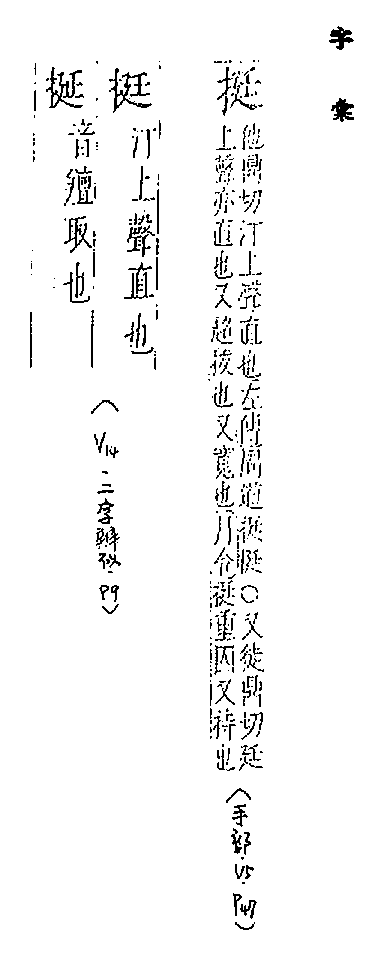 字彙
挺
他鼎切汀上聲直也左傳周道挺挺○又徒鼎切廷
上聲亦直也又超拔也又寬也月令挺重囚又待也
(手部.V5.P47)
挺 汀上聲直也
挻 音羶取也
(V14.二字辨似.P9)